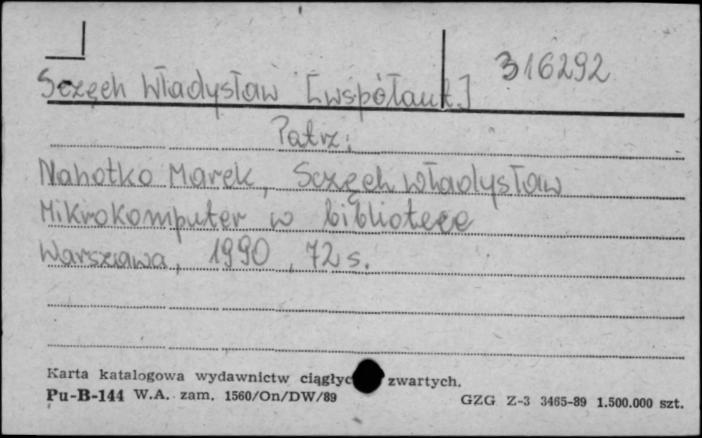 316292
Szczęch Władysław [współaut.]
Patrz:
Nahotko Marek, Szczęch Władysław
Mikrokomputer w bibliotece
Warszawa, 1990, 72 s.
Karta katalogowa wydawnictw ciągłyc zwartych.
Pu-B-144 W.A. zam. 1560/On/DW/89
GZG Z-3 3465-89 1.500.000 szt.